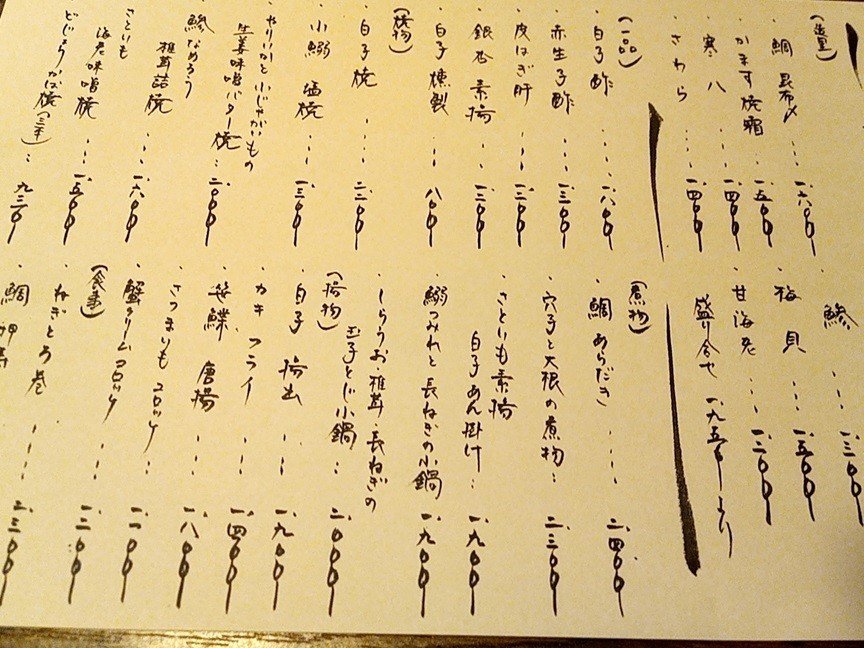 (造里)
・鯛 昆布〆 ・・・ 一、六〇〇
・かます焼霜 ・・・ 一、五〇〇
・寒八 ・・・ 一、四〇〇
・さわら ・・・ 一、四〇〇
・鯵 ・・・ 一、三〇〇
・梅貝 ・・・ 一、五〇〇
・甘海老 ・・・ 一、二〇〇
盛り合せ 一、九五〇より
(一品)
・白子酢 ・・・ 一、八〇〇
・赤生子酢 ・・・ 一、三〇〇
・皮はぎ肝 ・・・ 一、二〇〇
・銀杏素揚 ・・・ 一、三〇〇
・白子燻製 ・・・ 八〇〇
(焼物)
・白子焼 ・・・ 二、二〇〇
・小鰯 塩焼 ・・・ 一、三〇〇
・やりいかと小じゃがいもの
生姜味噌バター焼 ・・・ 二、〇〇〇
・鯵なめろう
椎茸詰焼 ・・・ 一、六〇〇
・さといも
海老味噌焼 ・・・ 一、五〇〇
・どじょうかば焼(三本) ・・・ 九三〇
(煮物)
・鯛あらだき ・・・ 二、四〇〇
・穴子と大根の煮物 ・・・ 二、三〇〇
・さといも素揚
白子あん掛け ・・・ 一、九〇〇
・鰯つみれと長ねぎの小鍋 一、九〇〇
・しらうお、椎茸、長ねぎの
玉子とじ小鍋 ・・・ 二、〇〇〇
(揚物)
・白子揚出 ・・・ 一、九〇〇
・カキフライ ・・・ 一、四〇〇
・笹鰈 唐揚 ・・・ 一、八〇〇
・さつまいもコロッケ ・・・ 一、一〇〇
・蟹クリームコロッケ ・・・ 一、三〇〇
(食事)
・ねぎとろ巻 ・・・ 二、三〇〇
・鯛